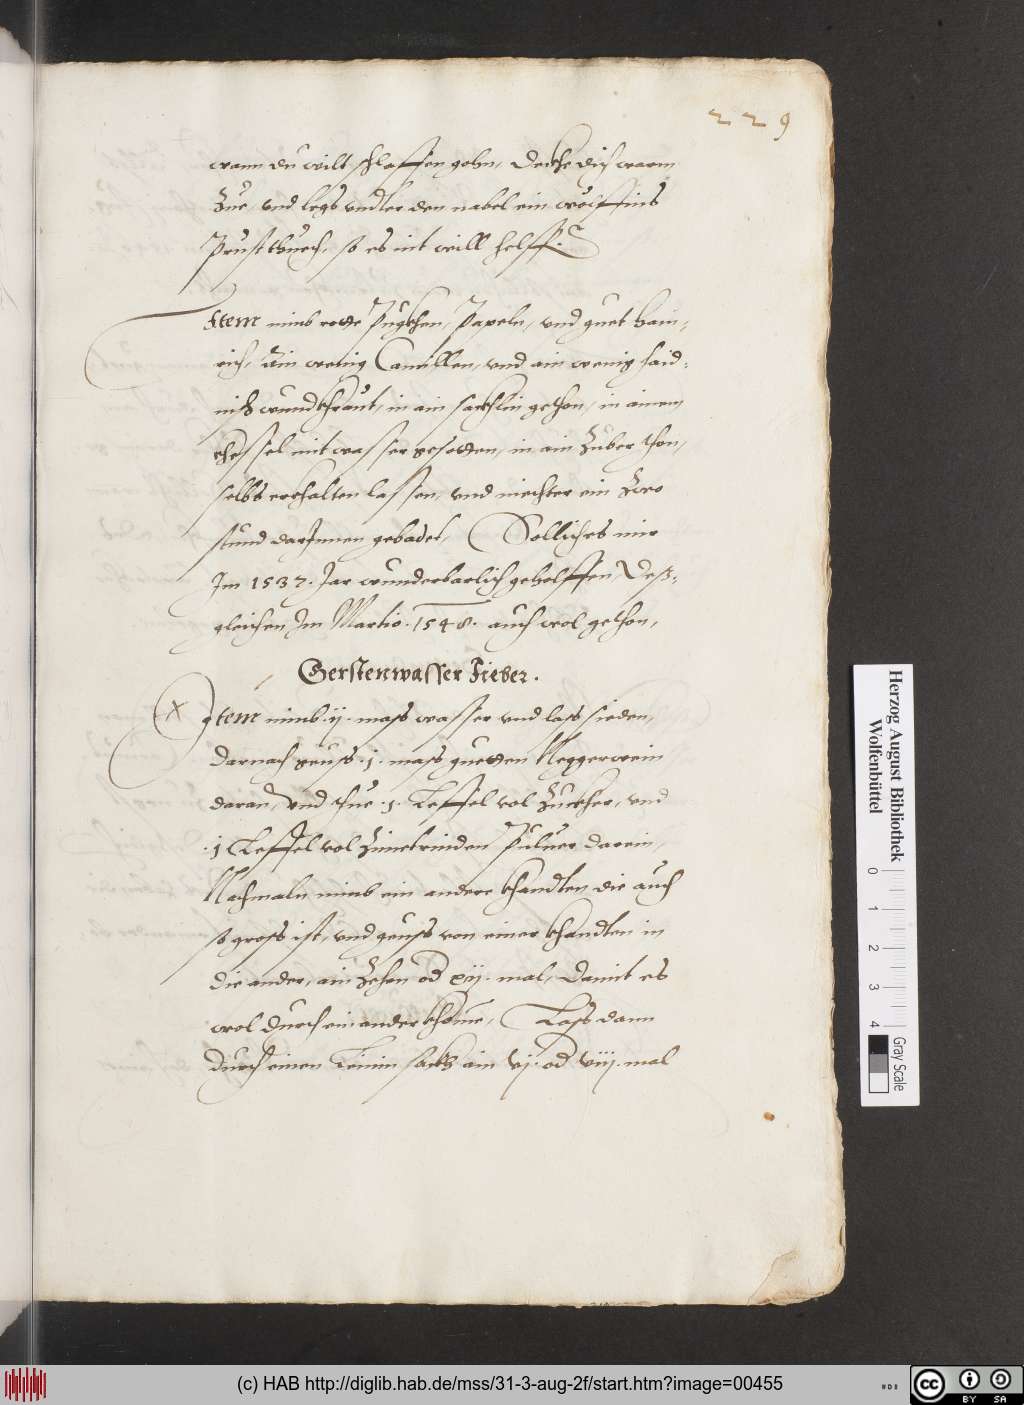 229
wann du wilt schlaffen gehn, Deckhe dich warm
Zue, und legs undter den nabel ein
Prustthuech, so es nit will helff.
Item nimb rotte Pugkhen, Papeln, und guet Hain,,
rich, Ain wenig Camillen, und ain wenig haid,,
nisch wundkhraut, in ain sackhlin gethon, in ainem
khessel mit wasser gesotten, in ain Zuber thon,
selbs erkhalten lassen, und niechter ein Zwo
stund darInnen gebadet, Sollichs mir
Im 1537. Jar wunderbarlich geholffen, Deß,,
gleichen Im Martio. 1548. auch wol gethon,
Gerstenwasser Fieber.
X Item nimb .ij. mass wasser und lass sieden,
darnach geuss .1. mass guetten Neggerwein
daran, und thue .1. Leffel vol Zuckher, und
.1 Leffel vol Zimetrinden Puluer darein,
Nachmaln nimb ein andere khandten die auch
so gross ist, und geuss von einer khandten in
die ander, ain Zehen od xij. mal, Damit es
wol durch einander khome, Lass dann
durch einen Leinin sackh ain vj. od viij. mal
Herzog August Bibliothek
Wolfenbüttel
0 1 2 3 4
Gray Scale
(c) HAB http://diglib.hab.de/mss/31-3-aug-2f/start.htm?image=00455
HAB
cc BY SA